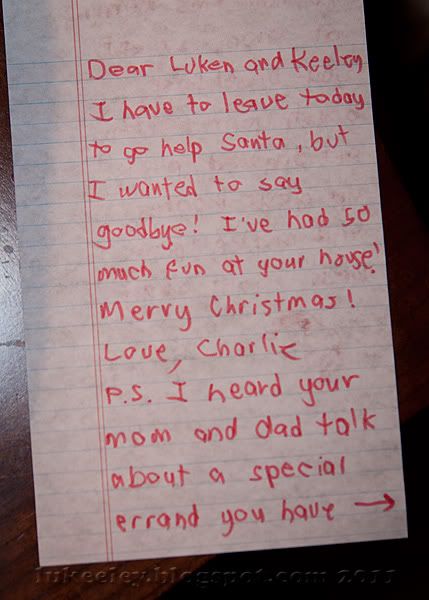 Dear Luken and Keeley
I have to leave today
to go help Santa, but
I wanted to say
goodbye! I've had so
much fun at your house!
Merry Christmas!
Love, Charlie
P.S. I heard your
mom and dad talk
about a special
errand you have →
lukeeley.blogspot.com 2011